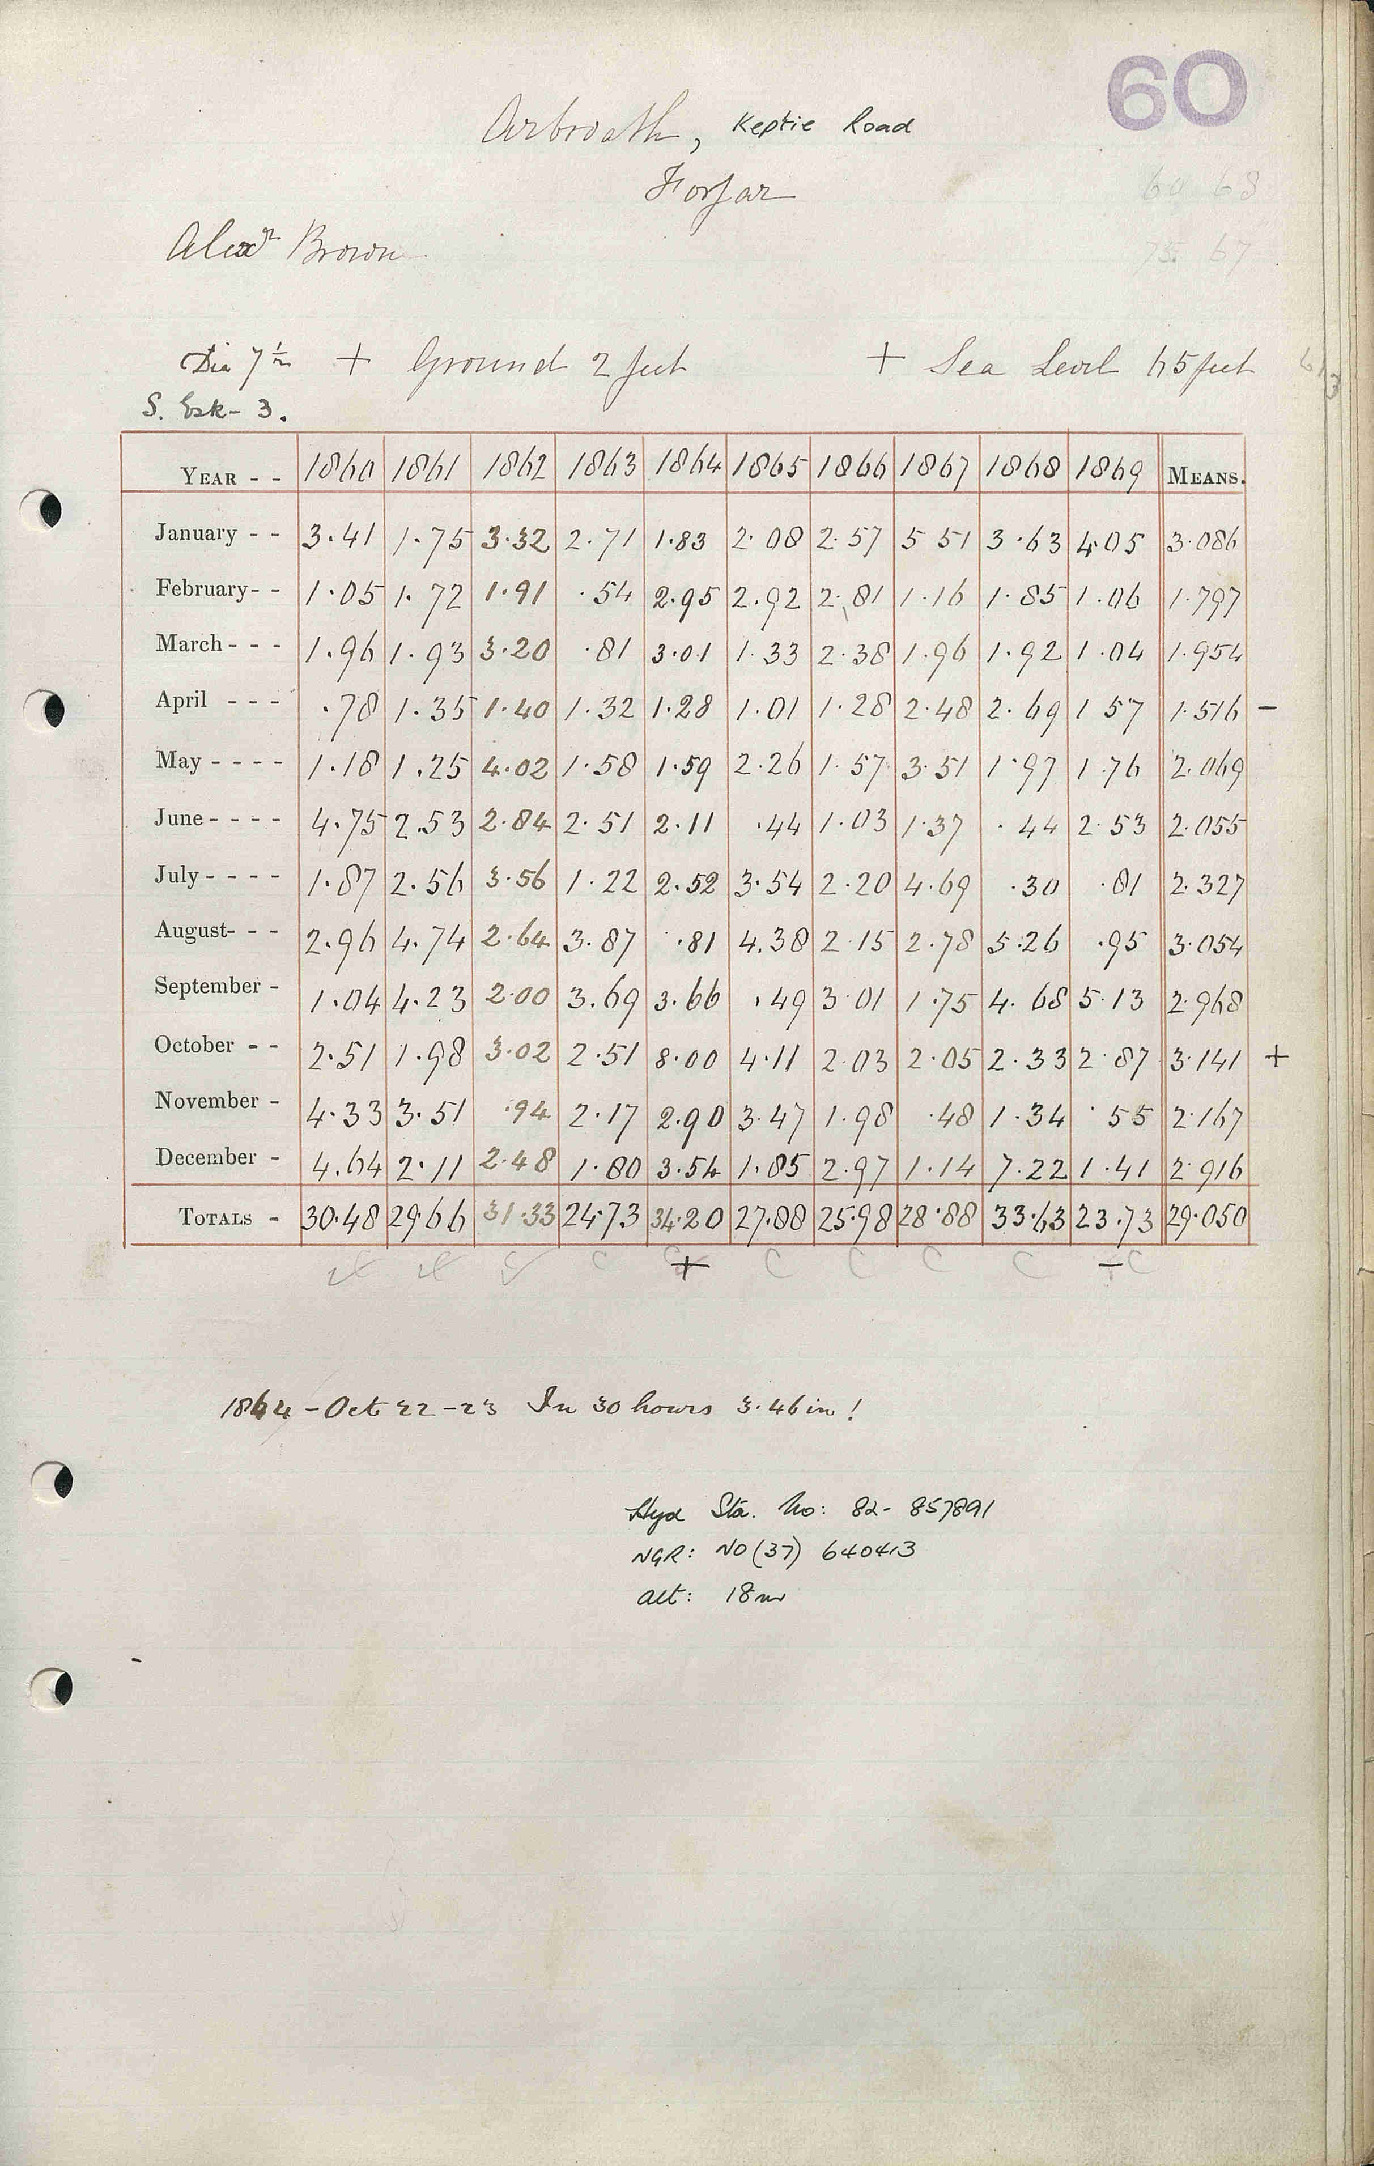 60
Arbroath, Keptie Road
Forfar
60 68
Alexr Brown
75 67
Dia 7½ + Ground 2 feet + Sea Level 65 feet
S. Esk - 3.
YEAR - - 1860 1861 1862 1863 1864 1865 1866 1867 1868 1869 MEANS.
January - - 3.41 1.75 3.32 2.71 1.83 2.08 2.57 5 51 3.63 4.05 3.086
February - - 1.05 1.72 1.91 .54 2.95 2.92 2.81 1.16 1.85 1.06 1.797
March - - - 1.96 1.93 3.20 .81 3.01 1.33 2.38 1.96 1.92 1.04 1.954
April - - - .78 1.35 1.40 1.32 1.28 1.01 1.28 2.48 2.69 1 57 1.516 -
May - - - - 1.18 1.25 4.02 1.58 1.59 2.26 1.57 3.51 1.97 1.76 2.069
June - - - - 4.75 2.53 2.84 2.51 2.11 .44 1.03 1.37 .44 2.53 2.055
July - - - - 1.87 2.56 3.56 1.22 2.52 3.54 2.20 4.69 .30 .81 2.327
August - - - 2.96 4.74 2.64 3.87 .81 4.38 2.15 2.78 5.26 .95 3.054
September - 1.04 4.23 2.00 3.69 3.66 .49 3 01 1.75 4.68 5.13 2.968
October - - 2.51 1.98 3.02 2.51 8.00 4.11 2.03 2.05 2.33 2.87 3.141 +
November - 4.33 3.51 .94 2.17 2.90 3.47 1.98 .48 1.34 .55 2.167
December - 4.64 2.11 2.48 1.80 3.54 1.85 2.97 1.14 7.22 1.41 2.916
TOTALS - 30.48 29.66 31.33 24.73 34.20 27.88 25.98 28.88 33.63 23.73 29.050
C + C C C C - C
1864 - Oct 22-23 In 30 hours 3.46 in!
Hyd Sta. No: 82-857891
NGR: NO (37) 640413
alt: 18m